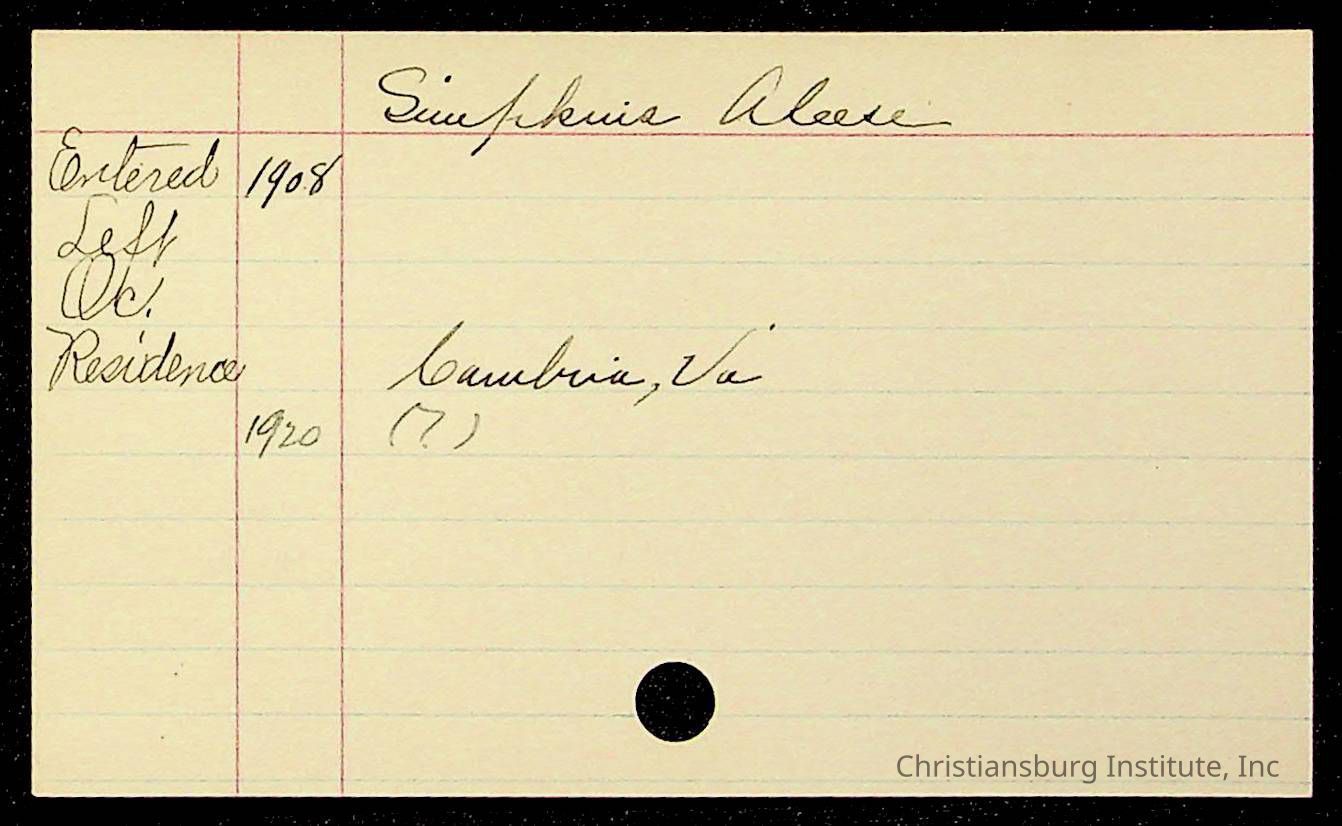 Simpkins Aleese
Entered 1908
Left
Oc.
Residence Cambria, Va
1920 (?)
Christiansburg Institute, Inc